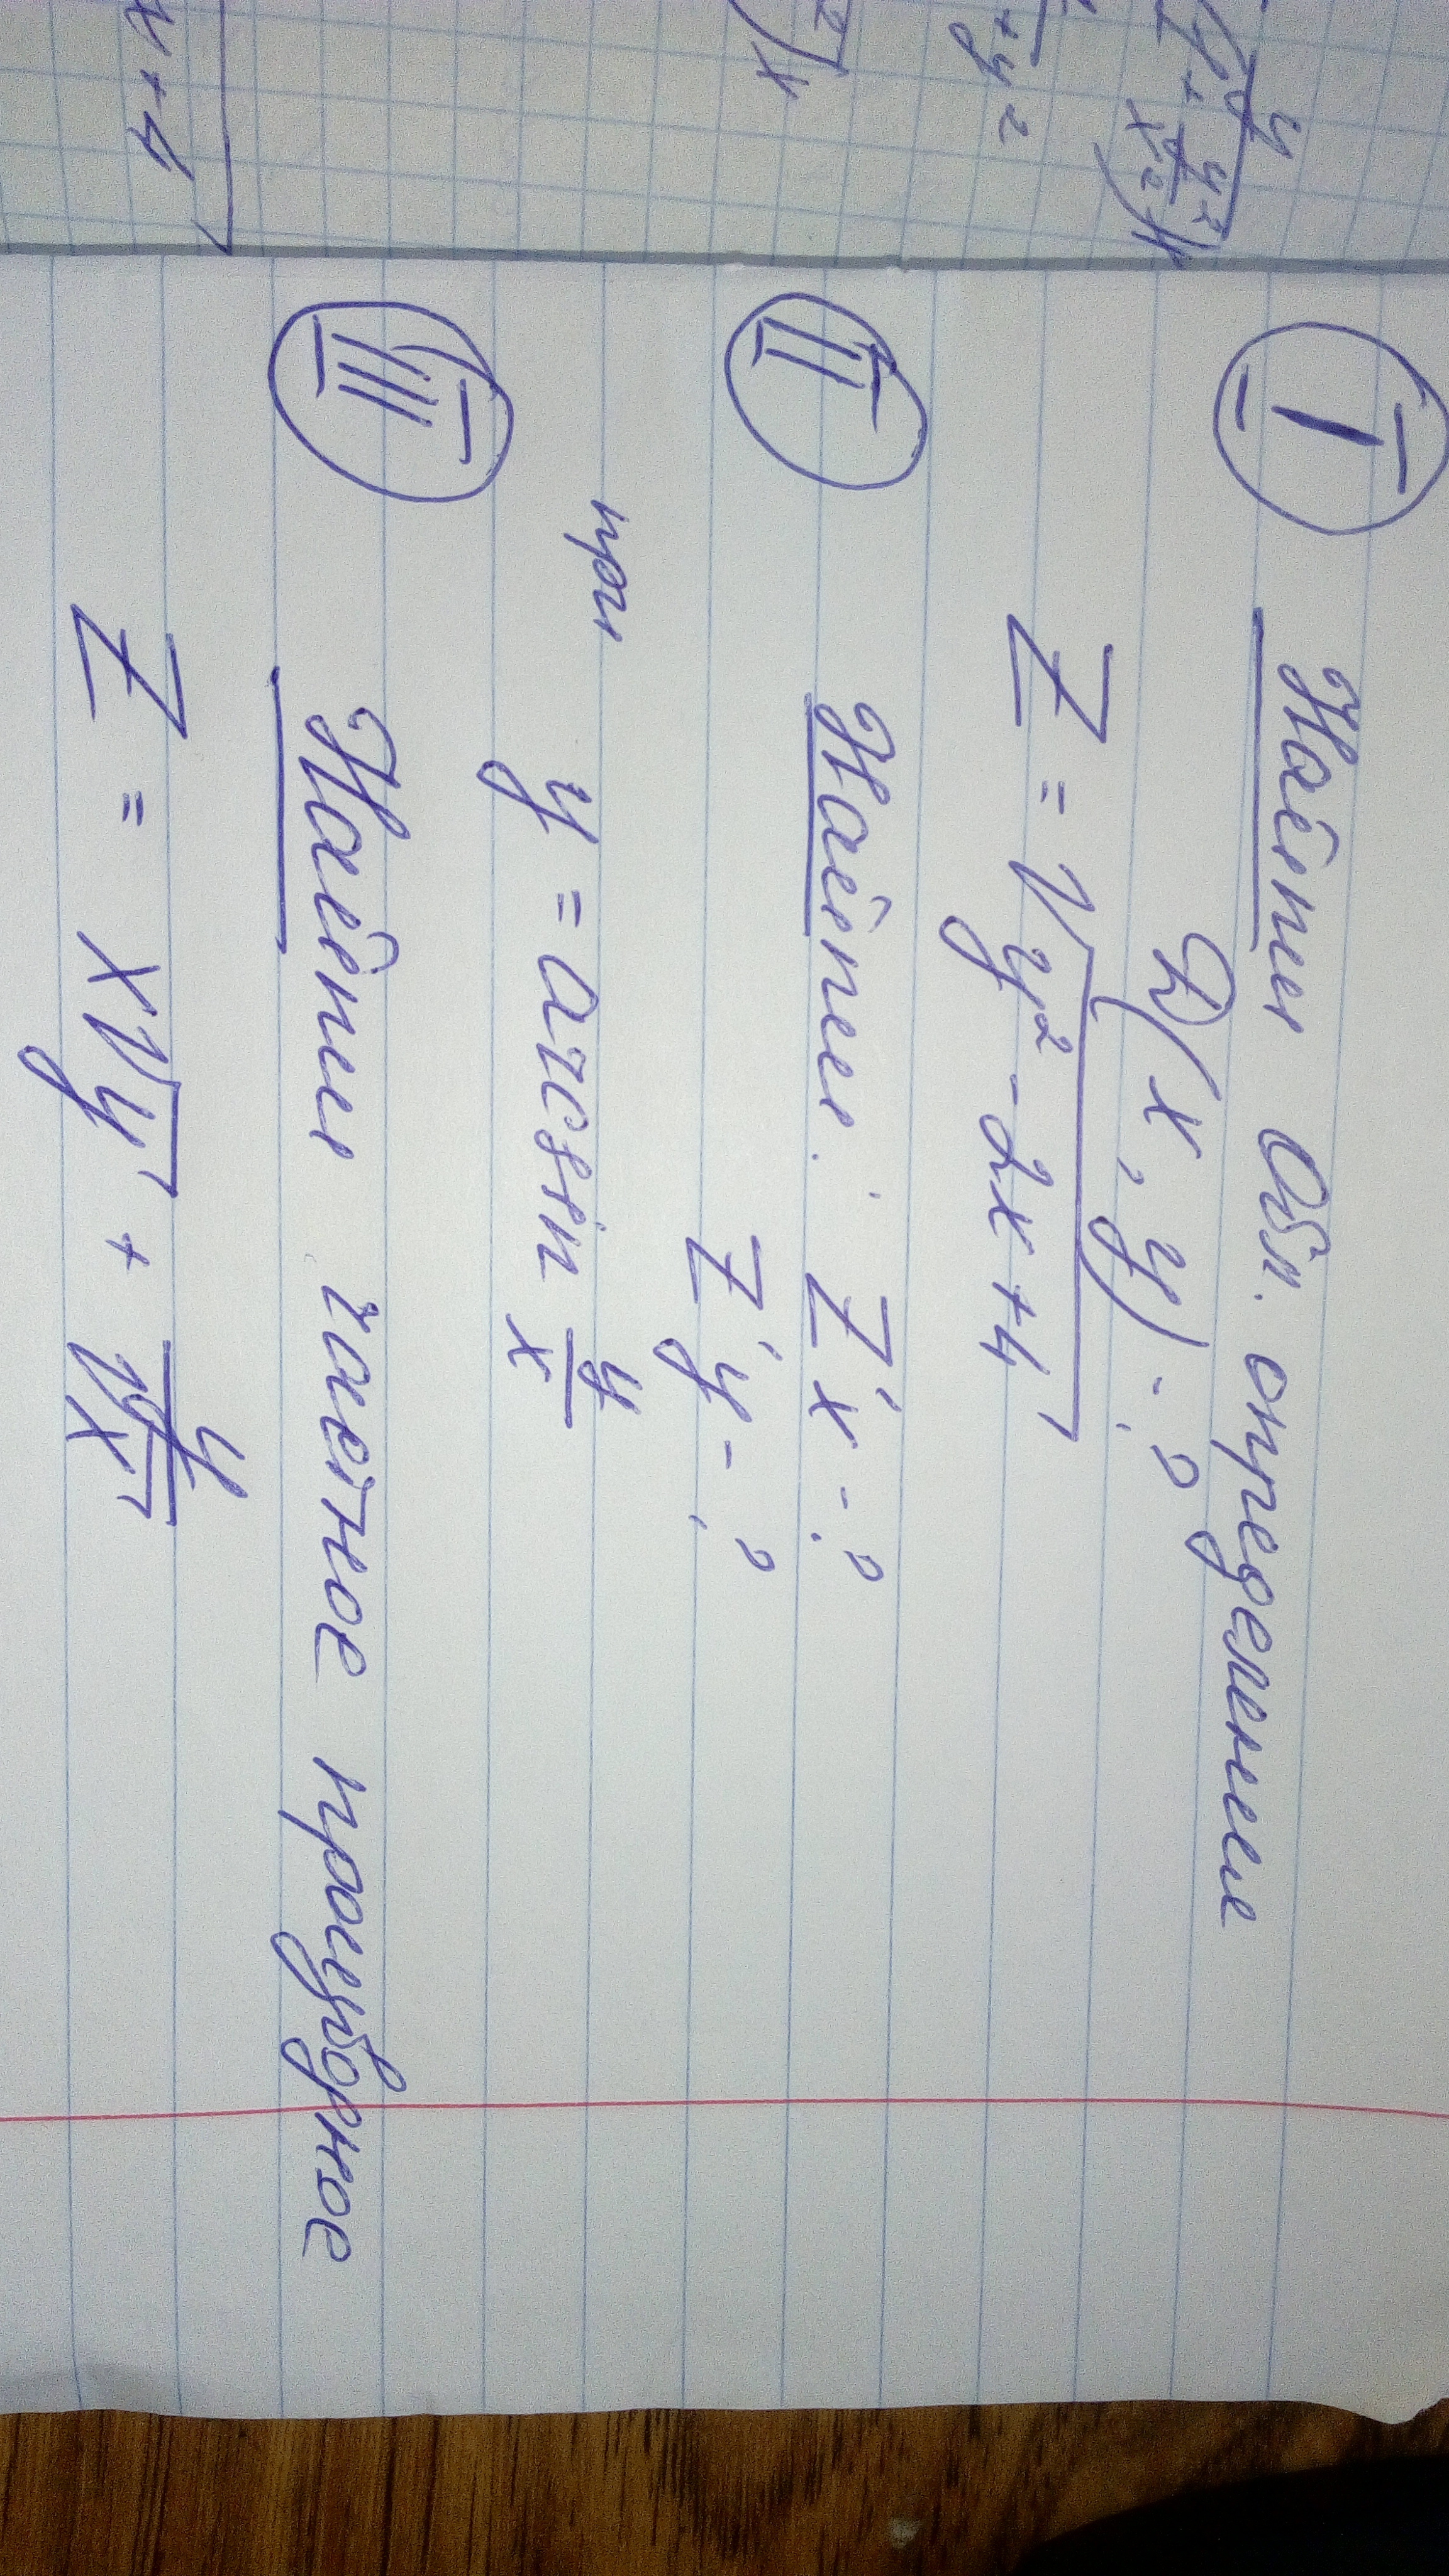 I Найти Обл. определении
D(x, y) - ?
Z = √y² - 2x + 4
II Найти: Z'x - ?
Z'y - ?
при
y = arcsin y/x
III Найти частное производное
Z = x√y + y/√x
x + 4
+ y²